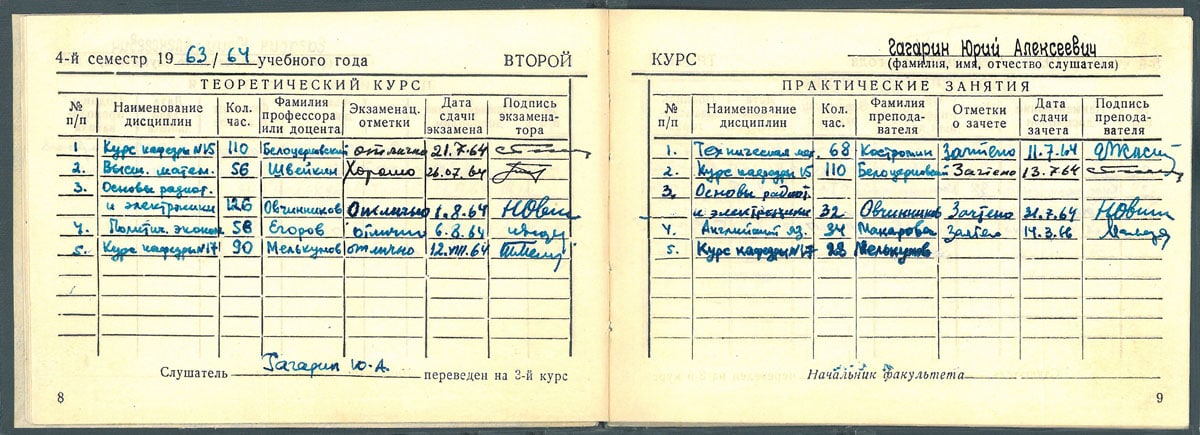 4-й семестр 19 63/64 учебного года ВТОРОЙ
ТЕОРЕТИЧЕСКИЙ КУРС
№ п/п Наименование дисциплин Кол. час. Фамилия профессора или доцента Экзаменац. отметки Дата сдачи экзамена Подпись экзамена-тора
1 Курс кафедры №15 110 Белоцерковский отлично 21.7.64
2. Высш. матем. 56 Швейкин Хорошо 26.07.64
3. Основы радиот.
и электроники 126 Овчинников Отлично 1.8.64
4. Политич. эконом 58 Егоров отлично 6.8.64
5. Курс кафедры №17 90 Мелькумов отлично 12.VIII.64
Слушатель Гагарин Ю.А. переведен на 3-й курс
8
КУРС Гагарин Юрий Алексеевич
(фамилия, имя, отчество слушателя)
ПРАКТИЧЕСКИЕ ЗАНЯТИЯ
№ п/п Наименование дисциплин Кол. час. Фамилия препода-вателя Отметки о зачете Дата сдачи зачета Подпись препода-вателя
1. Техническая мех. 68 Костромин Зачтено 11.7.64
2. Курс кафедры 15 110 Белоцерковский Зачтено 13.7.64
3. Основы радиот.
и электроники 32 Овчинников Зачтено 31.7.64
4. Английский яз. 34 Макарова Зачтено 14.3.66
5. Курс кафедры №17 28 Мелькумов
Начальник факультета
9